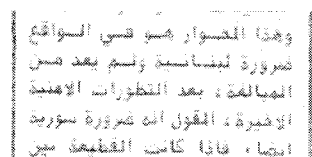 وهذا الحوار هو في الواقع
ضرورة لبنانية ولم يعد من
المبالغة، بعد التطورات الامنية
الاخيرة، القول انه ضرورة سورية
ايضا. فاذا كانت القطيعة بين